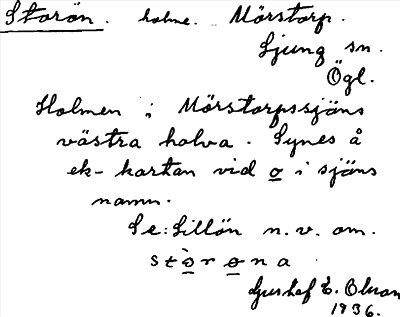 Storön. holme. Mörstorp.
Ljung sn.
Ögl.
Holmen i Mörstorpssjöns
västra halva. Synes å
ek-kartan vid o i sjöns
namn.
Se: Lillön n.v. om.
stòrøna
Gustaf E. Olsson
1936.